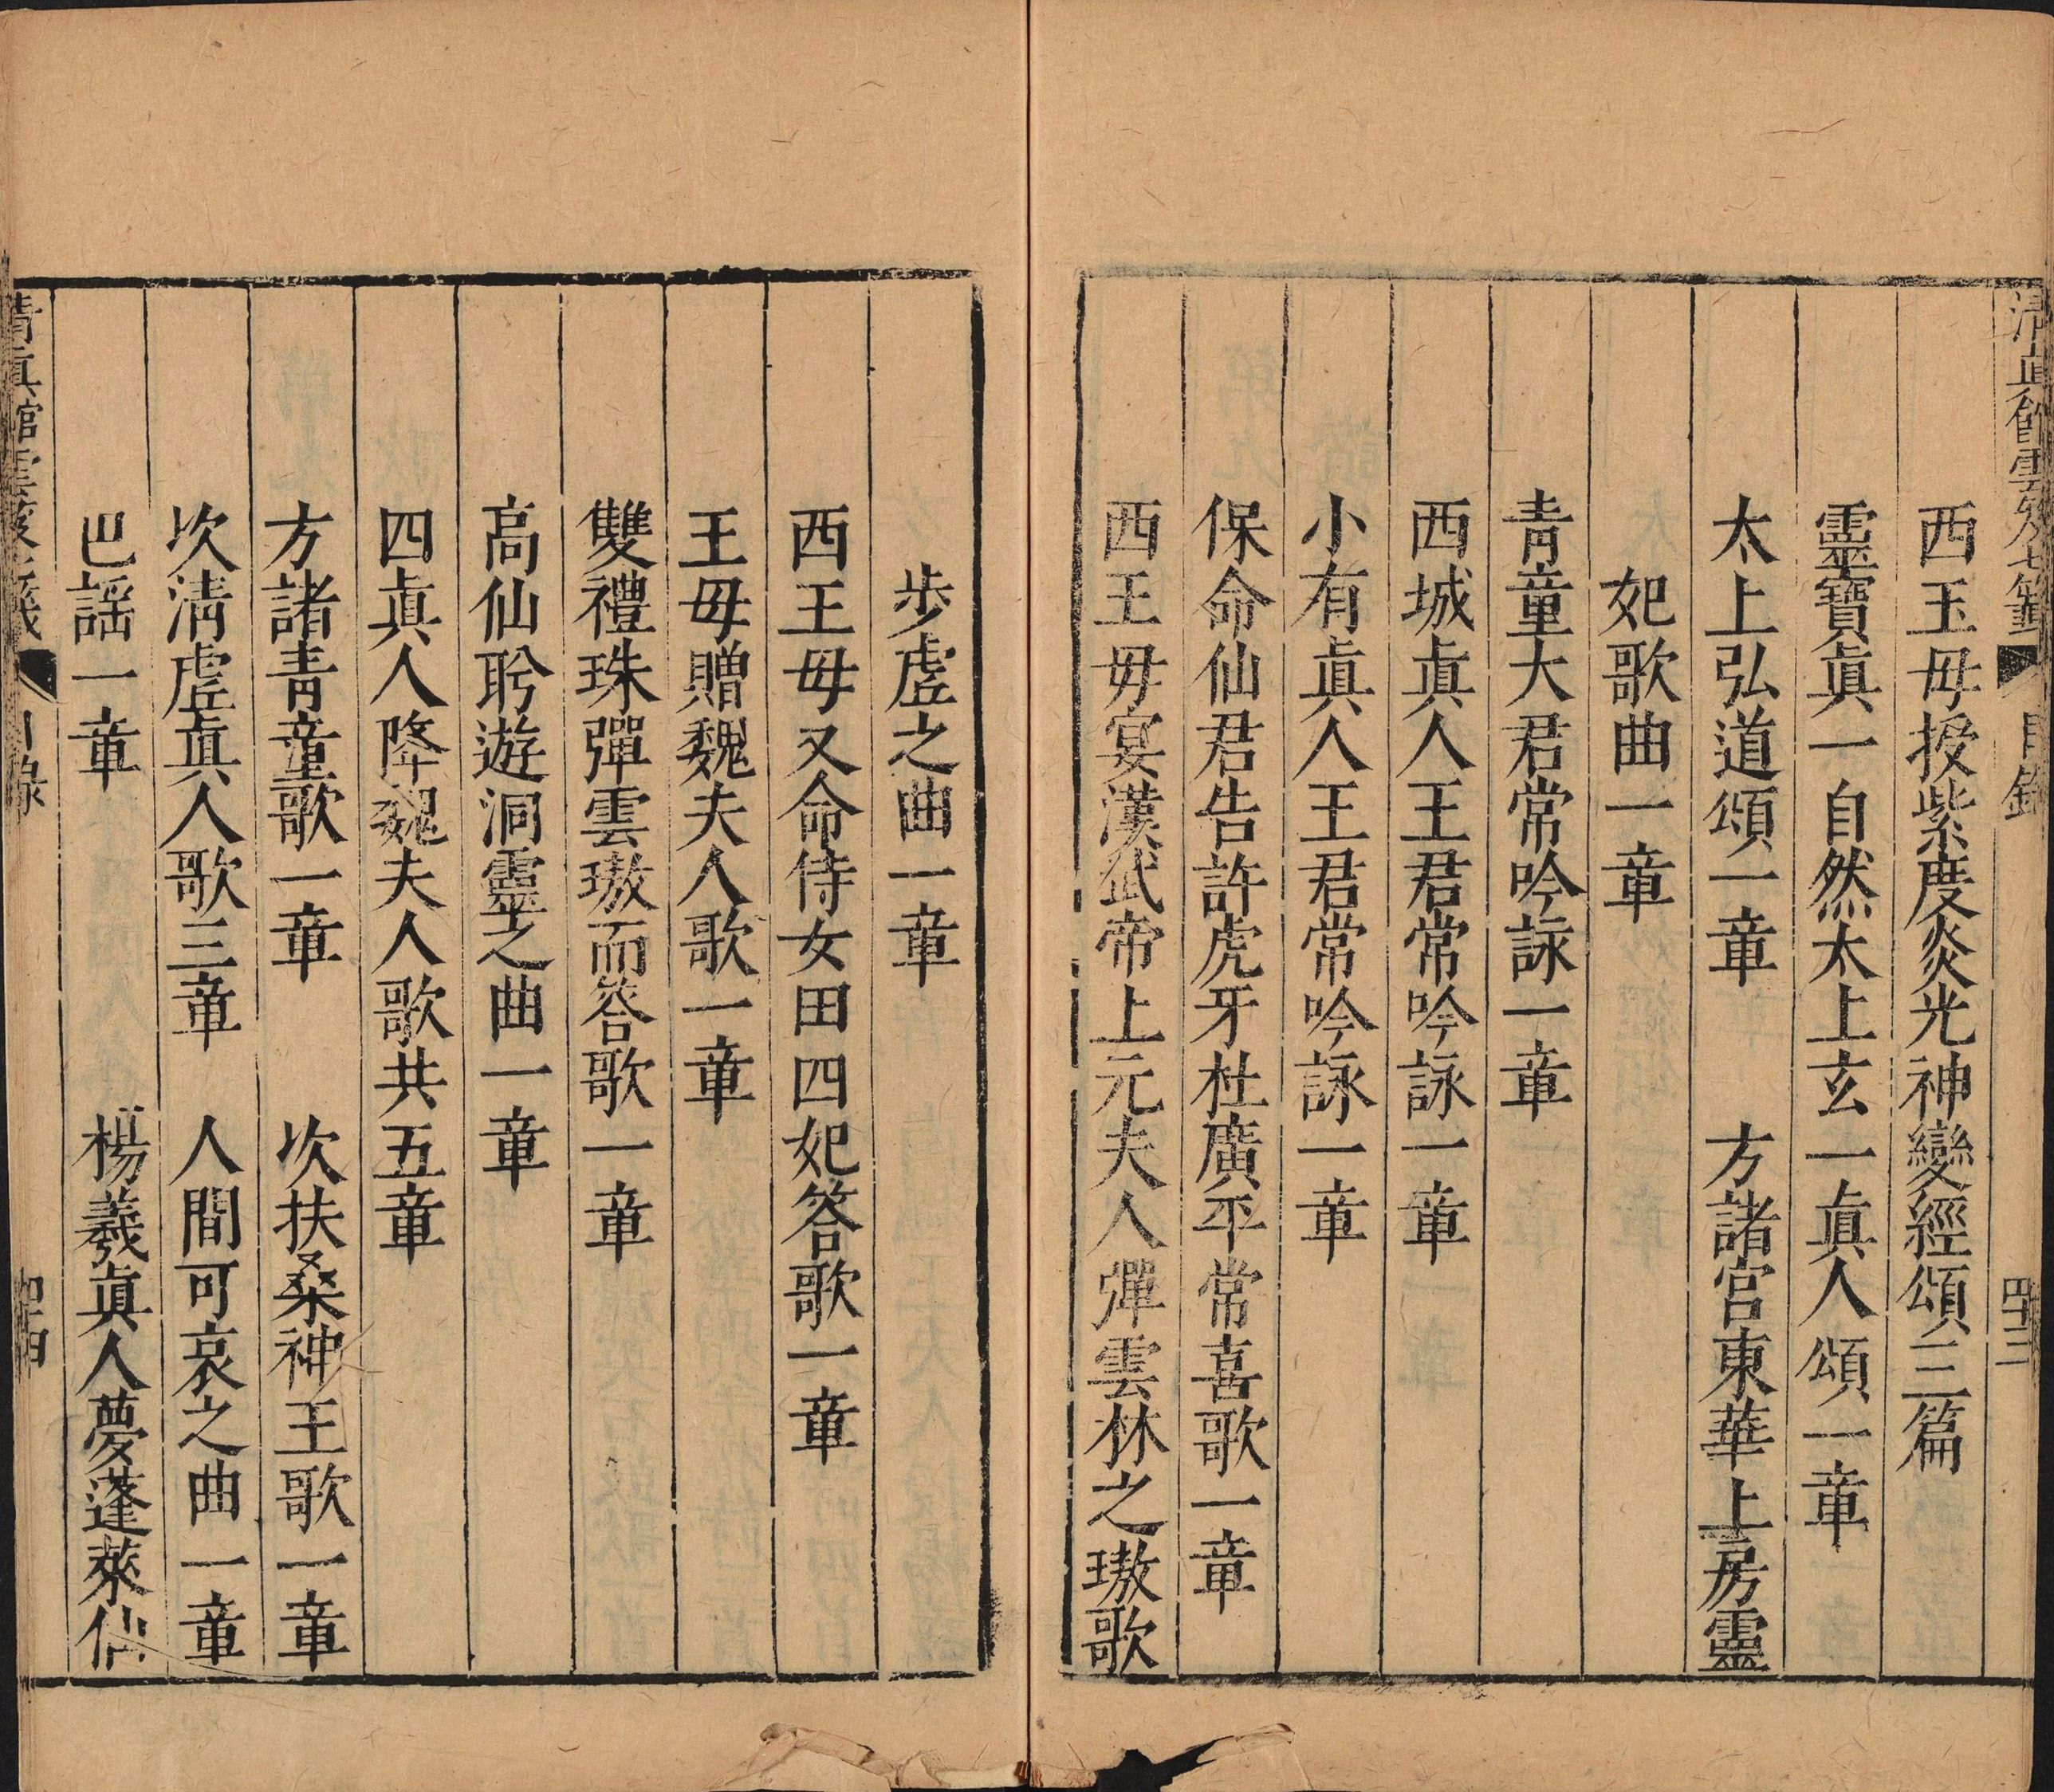 清真館雲笈七籤 目錄 四十三
西王毋授紫度炎光神變經頌三篇
靈寶真一自然太上玄一真人頌一章
太上弘道頌一章 方諸宮東華上房靈
妃歌曲一章
青童大君常吟詠一章
西城真人王君常吟詠一章
小有真人王君常吟詠一章
保命仙君告許虎牙杜廣平常喜歌一章
西王毋宴漢武帝上元夫人彈雲林之璈歌
步虛之曲一章
西王毋又命侍女田四妃答歌一章
王毋贈魏夫人歌一章
雙禮珠彈雲璈而答歌一章
高仙盻遊洞靈之曲一章
四真人降魏夫人歌共五章
方諸青童歌一章 次扶桑神王歌一章
次清虛真人歌三章 人間可哀之曲一章
巴謡一章 楊羲真人夢蓬萊仙
清真館雲笈七籤 目錄 四十四